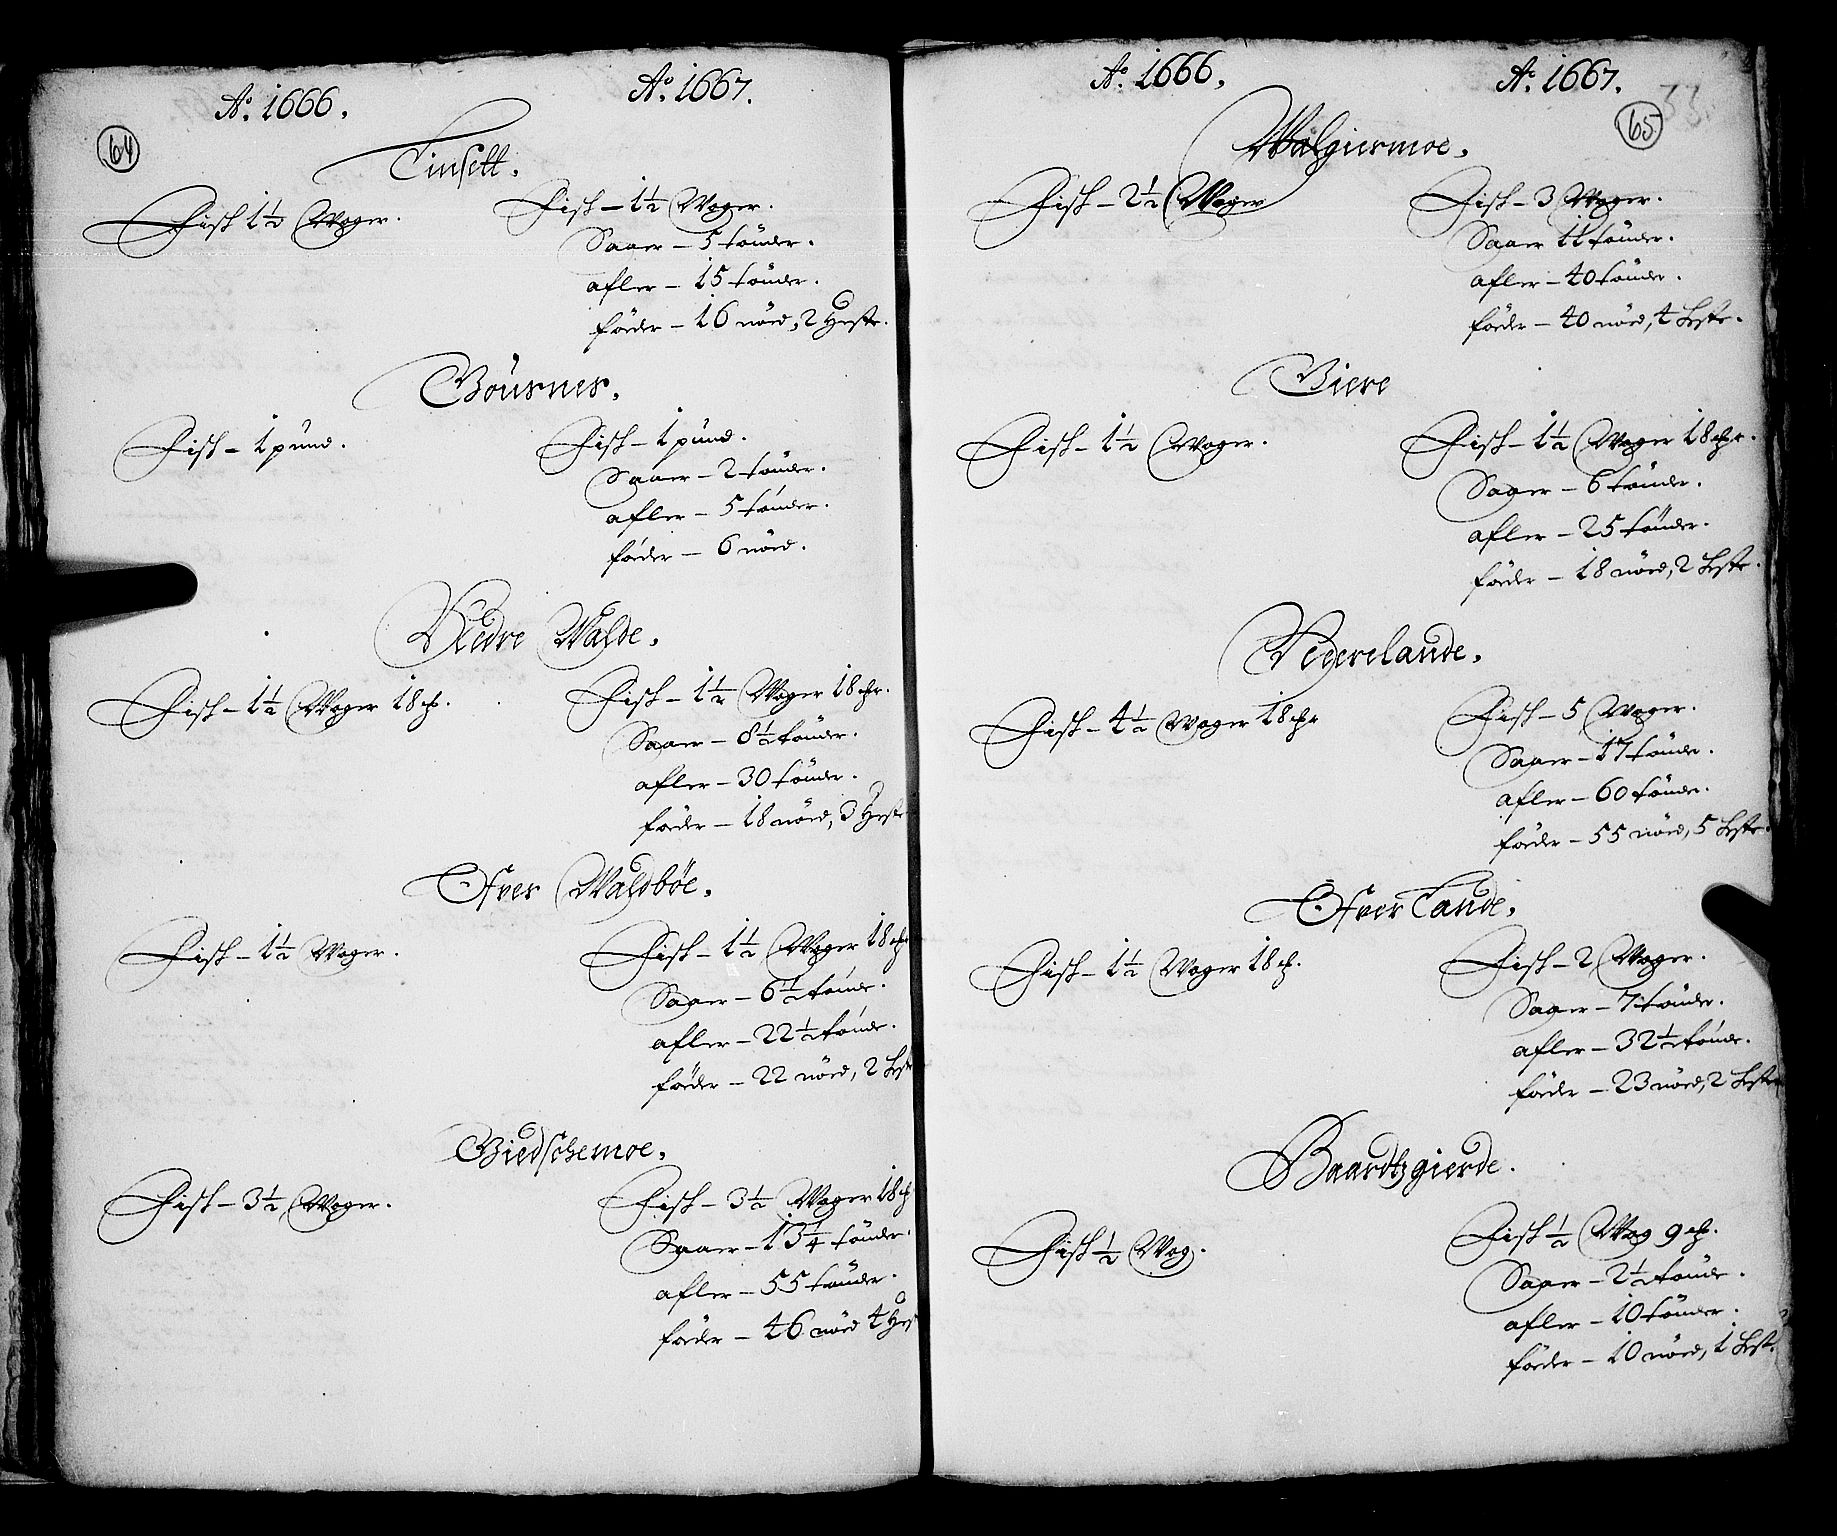 Aº. 1666. Aº. 1667.
64
Tinsett.
Fisk 1½ Woger. Fisk – 1½ Woger.
Saaer – 5 tönder.
afler – 15 tönder.
föder – 16 nöed, 2 Heste.
Bousnes.
Fisk – 1 pund. Fisk – 1 pund.
Saaer – 2 tönder.
afler – 5 tönder.
föder – 6 nöed.
Nedre Walde.
Fisk – 1½ Woger 18 ch. Fisk – 1½ Woger 18 chr.
Saaer – 8½ tönder.
afler – 30 tönder.
föder – 18 nöed, 3 Heste
Ofver Waldbøe.
Fisk – 1½ Woger. Fisk – 1½ Woger 18 ch
Saaer – 6½ tönde.
afler – 22½ tönde.
föder – 22 nöed, 2 Heste
Biedschemoe.
Fisk – 3½ Woger. Fisk – 3½ Woger 18 ch
Saaer – 13¼ tönder.
afler – 55 tönder.
föder – 46 nöed 4 Hes
Aº. 1666. Aº. 1667.
65
33.
Walgiermoe.
Fisk – 2½ Woger Fisk – 3 Woger.
Saaer 11 tönder.
afler – 40 tönder.
föder – 40 nöed, 4 Heste.
Biere
Fisk – 1½ Woger. Fisk – 1½ Woger 18 chr.
Saaer – 6 tönder.
afler – 25 tönder.
föder – 18 nöed, 2 Heste.
Nederelande.
Fisk – 4½ Woger 18 chr Fisk – 5 Woger.
Saaer – 17 tönder.
afler – 60 tönder.
föder – 55 nöed, 5 Heste.
Ofver Lande.
Fisk – 1½ Woger 18 ch. Fisk – 2 Woger.
Saaer – 7 tönder.
afler – 32½ tönde.
föder – 23 nöed, 2 Heste
Baardtzgierde.
Fisk ½ Wog. Fisk ½ Wog 9 ch.
Saaer – 2½ tönde.
afler – 10 tönder.
föder – 10 nöed, 1 Hest.